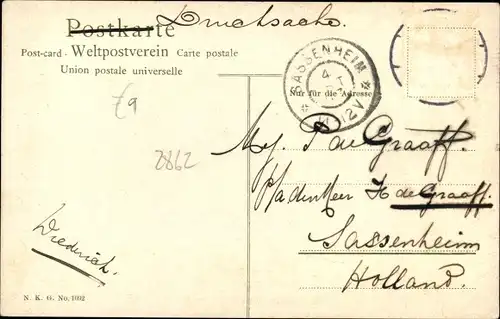 Postkarte Drucksache.
Post-card - Weltpostverein Carte postale
Union postale universelle
SASSENHEIM
4
12V
Nur für die Adresse
2862
de Graaff.
p/adr den Heer H de Graaff.
Sassenheim
Holland.
Diederich.
N. K. G. No. 1002